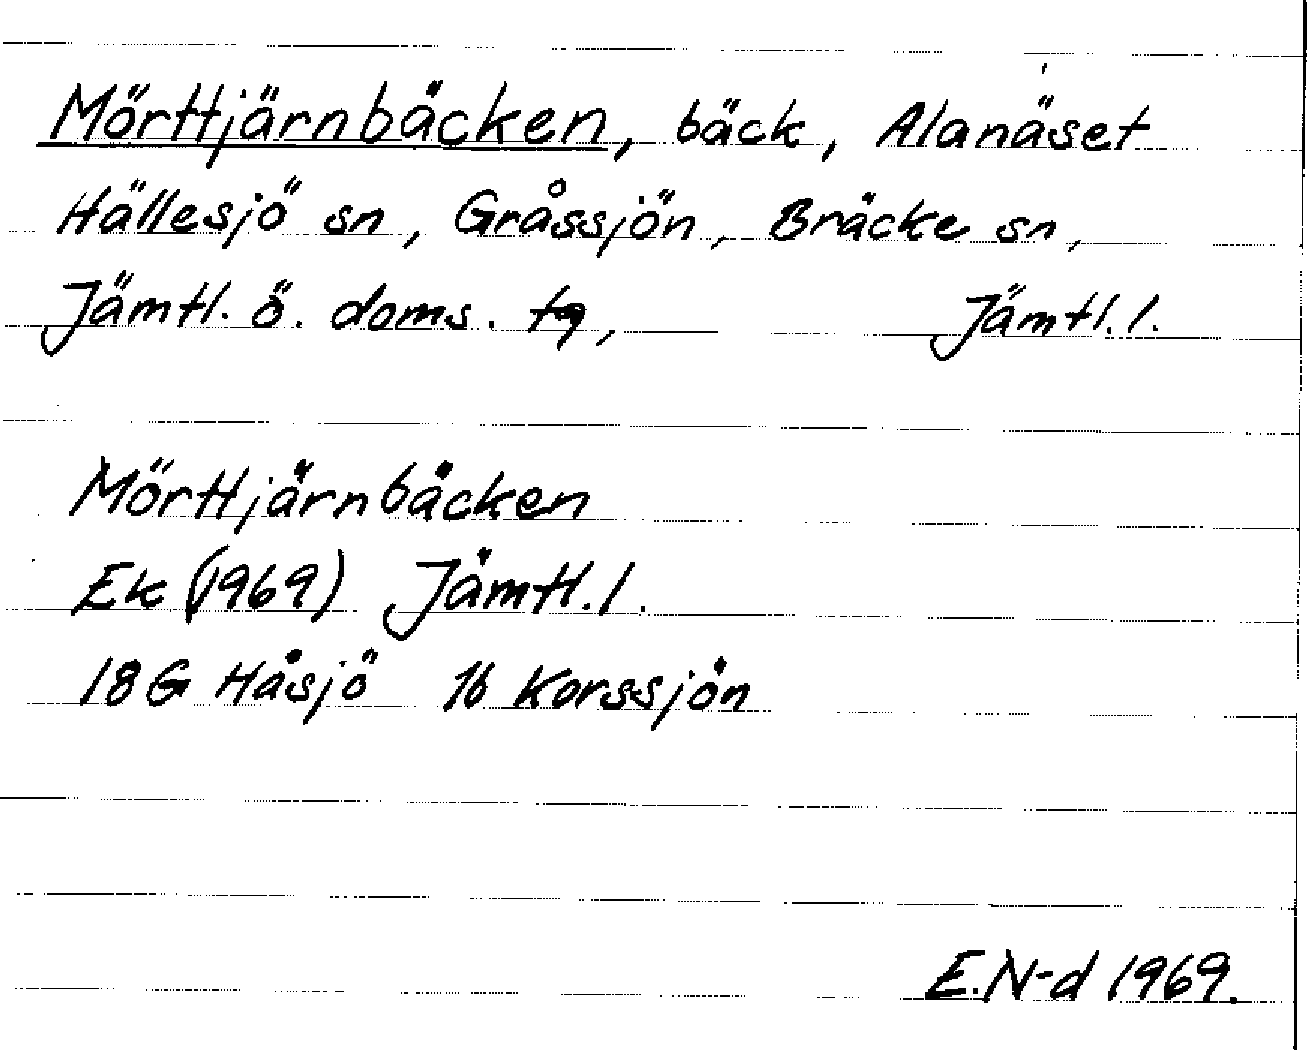 Mörttjärnbäcken, bäck, Alanäset
Hällesjö sn, Gråssjön, Bräcke sn,
Jämtl. ö. doms. tg, Jämtl. l.
Mörttjärnbäcken
Ek (1969) Jämtl. l.
18G Håsjö 1b Korssjön
E.N-d 1969.